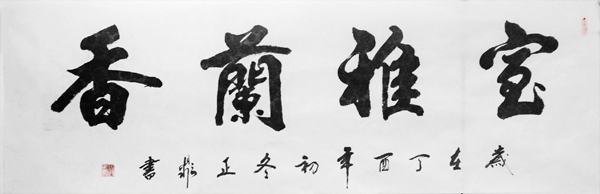 室雅蘭香
歲在丁酉年初冬正彪書